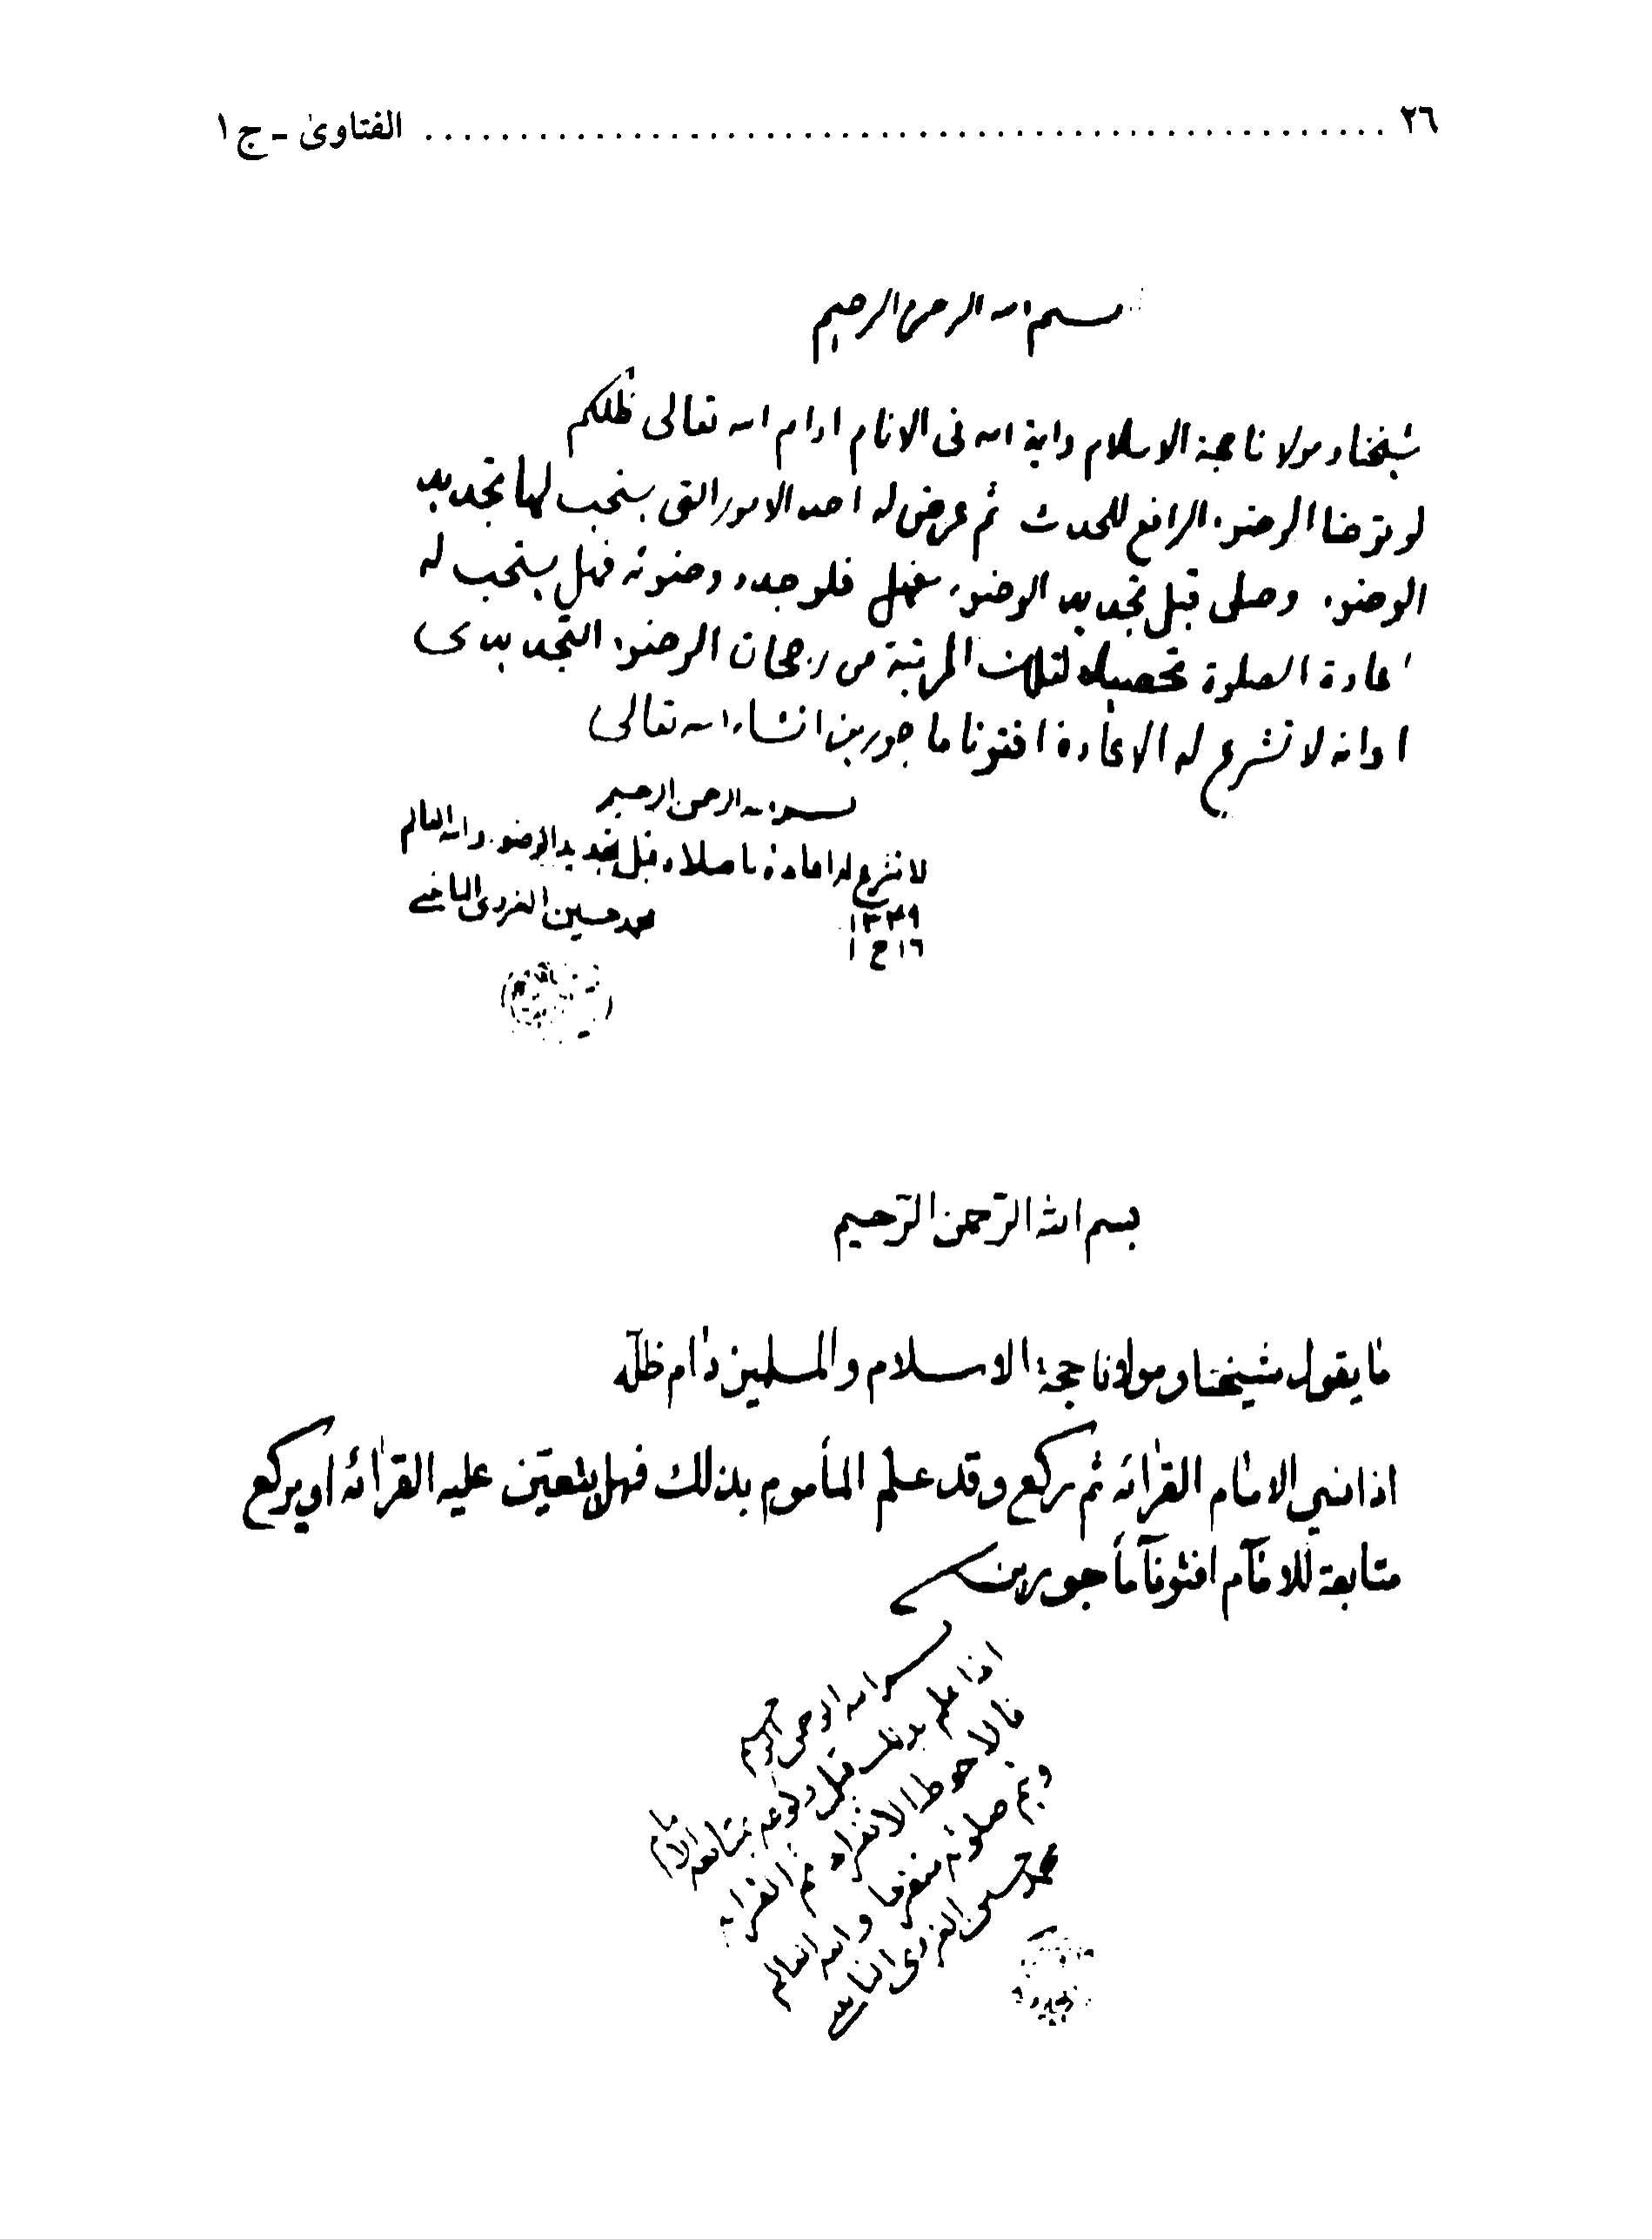 ٢٦ ........ الفتاوىٰ - ج ١
بسم الله الرحمن الرحيم
شيخنا ومولانا حجة الاسلام واية الله فى الانام ادام الله تعالى ظلكم
لو توضا الوضوء الرافع للحدث ثم عرض له احد الامور التى يستحب لها تجديد
الوضوء وصلى قبل تجديد الوضوء فلو جدد وضوئه فهل يستحب له
اعادة الصلوة تحصيلا لتلك المرتبة من رجحان الوضوء التجديدى
او انه لا تشرع له الاعادة افتونا ماجورين انشاء الله تعالى
بسم الله الرحمن الرحيم
لا تشرع له اعادة ما صلاه قبل تجديد الوضوء والله العالم
١٣٣٩
١٦ ج ١
محمد حسين الغروى النائينى
بسم الله الرّحمن الرّحيم
ما يقول شيخنا ومولانا حجة الاسلام والمسلمين دام ظلّه
اذا نسي الامام القرائه ثم ركع وقد علم المأموم بذلك فهل يتعيّن عليه القرائه او يركع
متابعة للامام افتونا مأجورين
بسم الله الرحمن الرحيم
اذا علم بذلك قبل ركوعه بمتابعة الامام
فالاحوط الانفراد ثم القراءة
ويتم صلوته منفردا والله العالم
محمد حسين الغروى النائينى